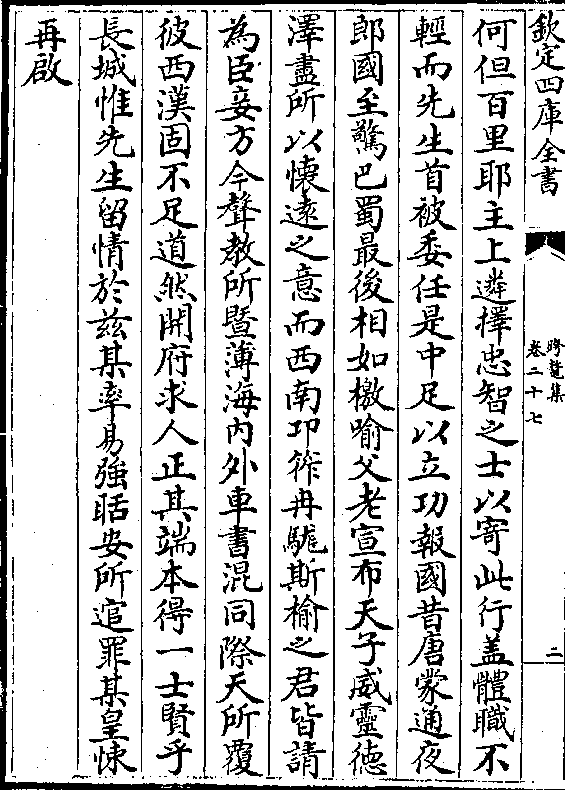 欽定四庫全書
跨鼇集
卷二十七
二
何但百里耶主上遴擇忠智之士以寄此行盖體職不
輕而先生首被委任是中足以立功報國昔唐蒙通夜
郎國至驚巴蜀最後相如檄喻父老宣布天子威靈德
澤盡所以懐逺之意而西南卭筰冉駹斯榆之君皆請
為臣妾方今聲教所暨薄海内外車書混同際天所覆
彼西漢固不足道然開府求人正其端本得一士賢乎
長城惟先生留情於兹某率易強聒安所逭罪某皇悚
再啟